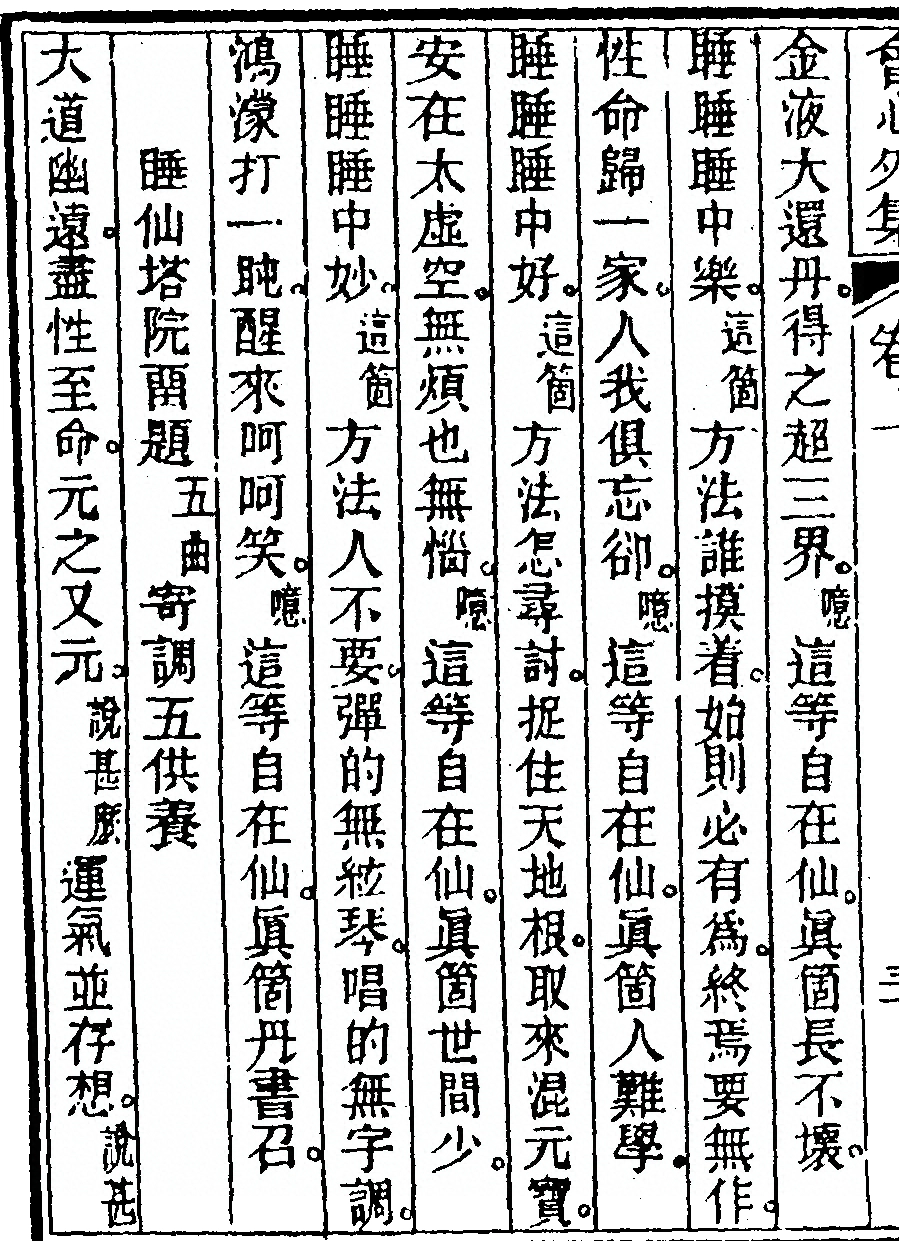 會心外集 卷 一 三一
金液大還丹。得之超三界。噫這等自在仙。眞箇長不壞。
睡睡睡中樂。這箇方法誰摸着。始則必有爲。終焉要無作。
性命歸一家。人我俱忘卻。噫這等自在仙。眞箇人難學。
睡睡睡中好。這箇方法怎尋討。捉住天地根。取來混元寶。
安在太虛空。無煩也無惱。噫這等自在仙。眞箇世間少。
睡睡睡中妙。這箇方法人不要。彈的無絃琴。唱的無字調。
鴻濛打一盹。醒來呵呵笑。噫這等自在仙。眞箇丹書召。
睡仙塔院閒題五曲寄調五供養
大道幽遠。盡性至命。元之又元。說甚麽運氣並存想。說甚